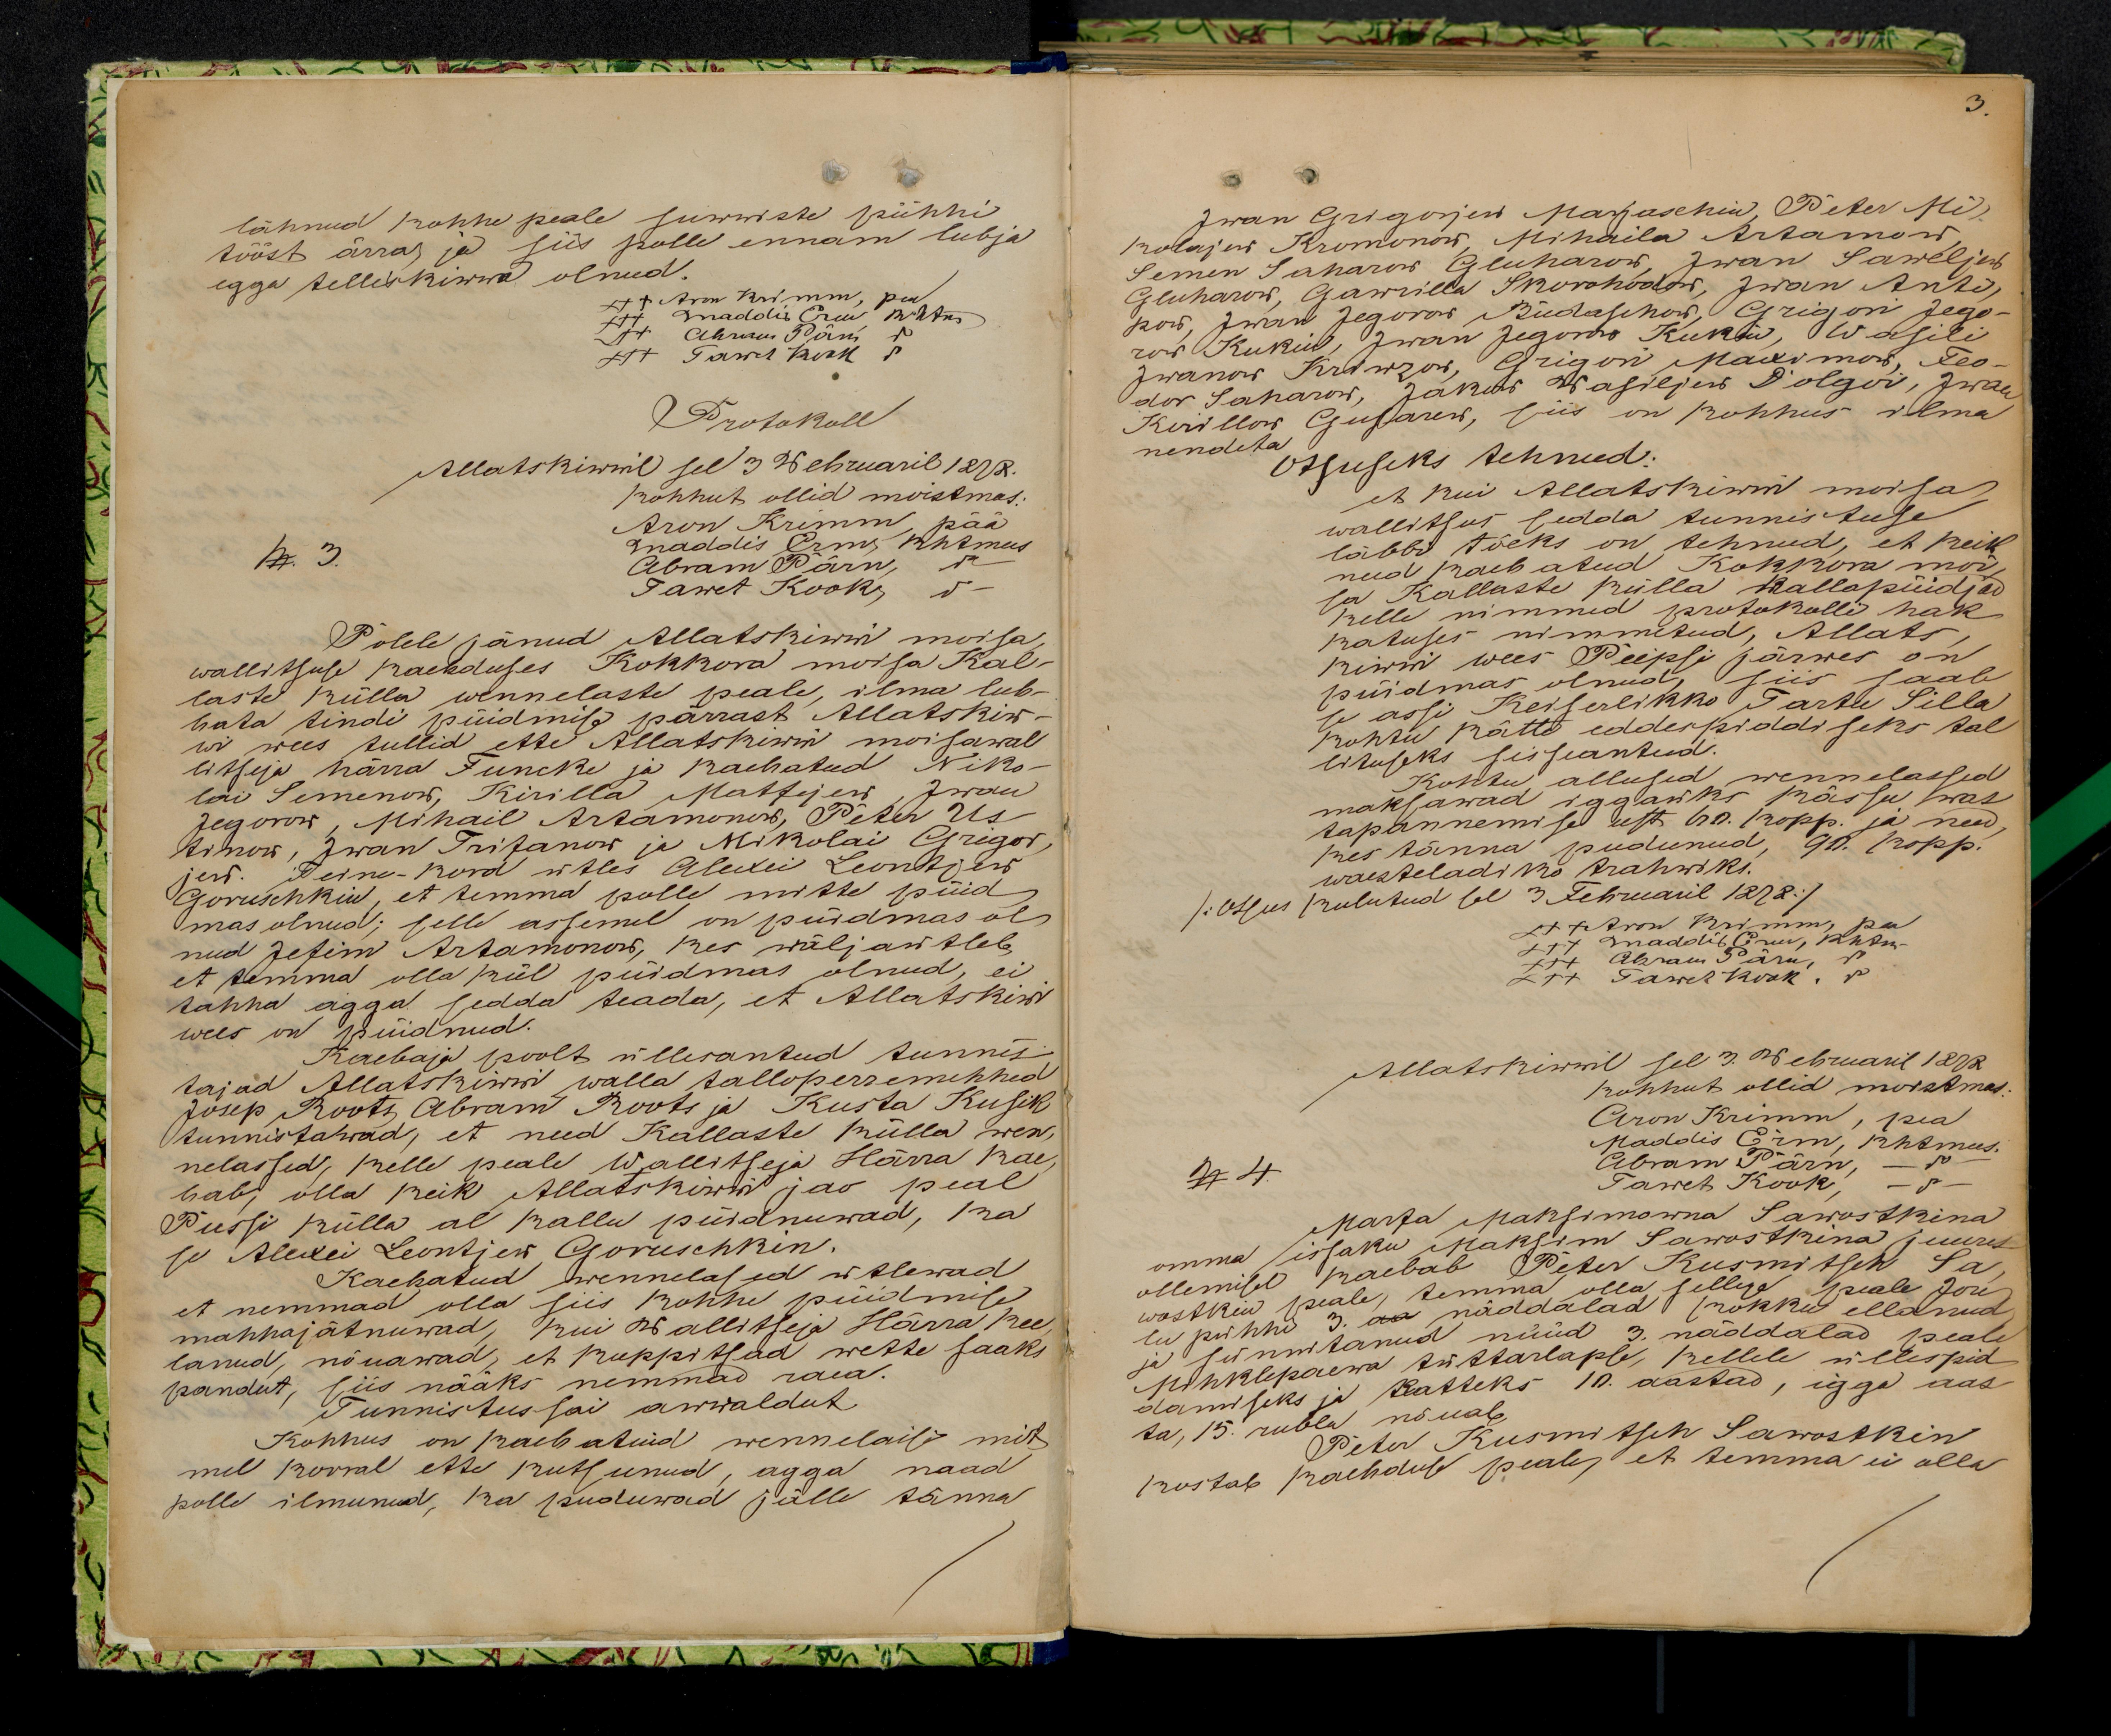 lähnud kohhe peale suwwiste pühhi
tööst ärra, ja siis polle ennam lubja
egga telleskiwwa olnud.
+++ Aron Krimm, pea
+++ Maddis Erm khtms
+++ Abram Pärn d
+++ Tawet Kook d
Protokoll
Allatskiwwil sel 3 Webruaril 1878.
kohhut ollid moistmas:
Aron Krimm, pää
Maddis Erm, khtmus
№. 3.
Abram Pärn, d-
Tawet Kook, d-
Polele jänud Allatskiwwi moisa
wallitsuse kaebduses Kokkora moisa Kal-
laste külla wennelaste peale, ilma lub-
bata tindi püidmise pärrast Allatskiw-
wi wees tullid ette Allatskiwwi moisawal
litseja härra Funcke ja kaebatud Niko-
lai Semenow, Kirilla Matfejew, Jwan
Jegorow, Mihail Artamonow, Peter Us
tinow, Jwan Trifanow ja Nikolai Grigor,
jew. Teine-kord ütles Alexei Leontjew
Goruschkin, et temma polle mitte püid
mas olnud; selle assemel on püidmas ol
nud Jefim Artamonow, kes wäljaütleb,
et temma olla kül püidmas olnud, ei
tahha agga sedda teada, et Allatskiwi
wees on püidnud.
Kaebaja poolt üllesantud tunnis
tajad Allatskiwwi walla talloperremehhed
Josep Roots, Abram Roots ja Kusta Kusik
tunnistawad, et need Kallaste külla wen,
nelassed, kelle peale Wallitseja Härra kae,
bab, olla keik Allatskiwwi jao peal
Pussi külla al kallu püidnuwad, ka
se Alexei Leontjew Goruschkin.
Kaebatud wennelased ütlewad
et nemmad olla siis kohhe püüdmise
mahhajätnuwad, kui Wallitseja Härra kee,
lanud, nõuawad, et kuppitsad wette saaks
pandut, siis nääks nemmad raea.
Tunnistus sai awwaldut
Kohhus on kaebatuid wennelaisi mit
mel korral ette kutsunud, agga naad
polle ilmunud, ka puduwad jälle tänna
3.
Jwan Grigorjew Marjaschin, Peter Ni,
kolajew Kromonow, Mihaila Artamow,
Semen Saharow Gluharow, Jwan Saweljew
Gluharow, Gawrilla Skorohodow, Jwan Anti,
pow, Jwan Jegorow Rüdaschow, Grigori Jego-
row Kukin, Jwan Jegorow Kukin, Wasili
Jwanow Kriwzow, Grigori Maximow, Feo-
dor Saharow, Jakow Wasiljew Dolgoi, Jwan
Kirillow Gusarew, siis on kohhus ilma
nendeta
Otsuseks tehnud:
et kui Allatskiwwi moisa
wallitsus sedda tunnistuse
läbbi töeks on tehnud, et keik
need kaebatud Kokkora moi,
sa Kallaste külla kallapüidjad
kelle nimmed protokolli hak
katuses nimmetud, Allats,
kiwwi wees Peipsi järwes on
püidmas olnud, siis saab
se assi Keiserlikko Tartu Silla
kohtu kätte edderpiddiseks tal
lituseks sisseantud.
Kohtu allused wennelassed
maksawad iggaüks kässu was
tapannemise est 60. kopp. ja need,
kes tänna pudunud, 90. kopp.
waesteladiko trahwiks.
/: Otsus kulutud sel 3 Februaril 1878:/
+++ Aron Krimm, pea
+++ Maddis Erm, khtm-
+++ Abram Pärn, d
+++ Tawet Kook. d
Allatskiwwil sel 3. Webruaril 1878
kohhut ollid moistmas:
Aron Krimm, pea
Maddis Erm, khtmus.
№ 4.
Abram Pärn, -d-
Tawet Kook, -d-
Marfa Maksimowna Sawostkina
omma issaku Maksim Sawostkina juures
ollemisel kaebab Peter Kusmitsch Sa,
wostkin peale, temma olla sellega peale Jou
lu pühhi 3. näddalad kokku ellanud
ja sünnitanud nüüd 3. näddalad peale
Mihklepaewa tüttarlapse, kellele üllespid
damiseks ja katteks 10. aastad, igga aas
ta, 15. rubla nõuab
Peter Kusmitsch Sawostkin
kostab kaebduse peale, et temma ei olla